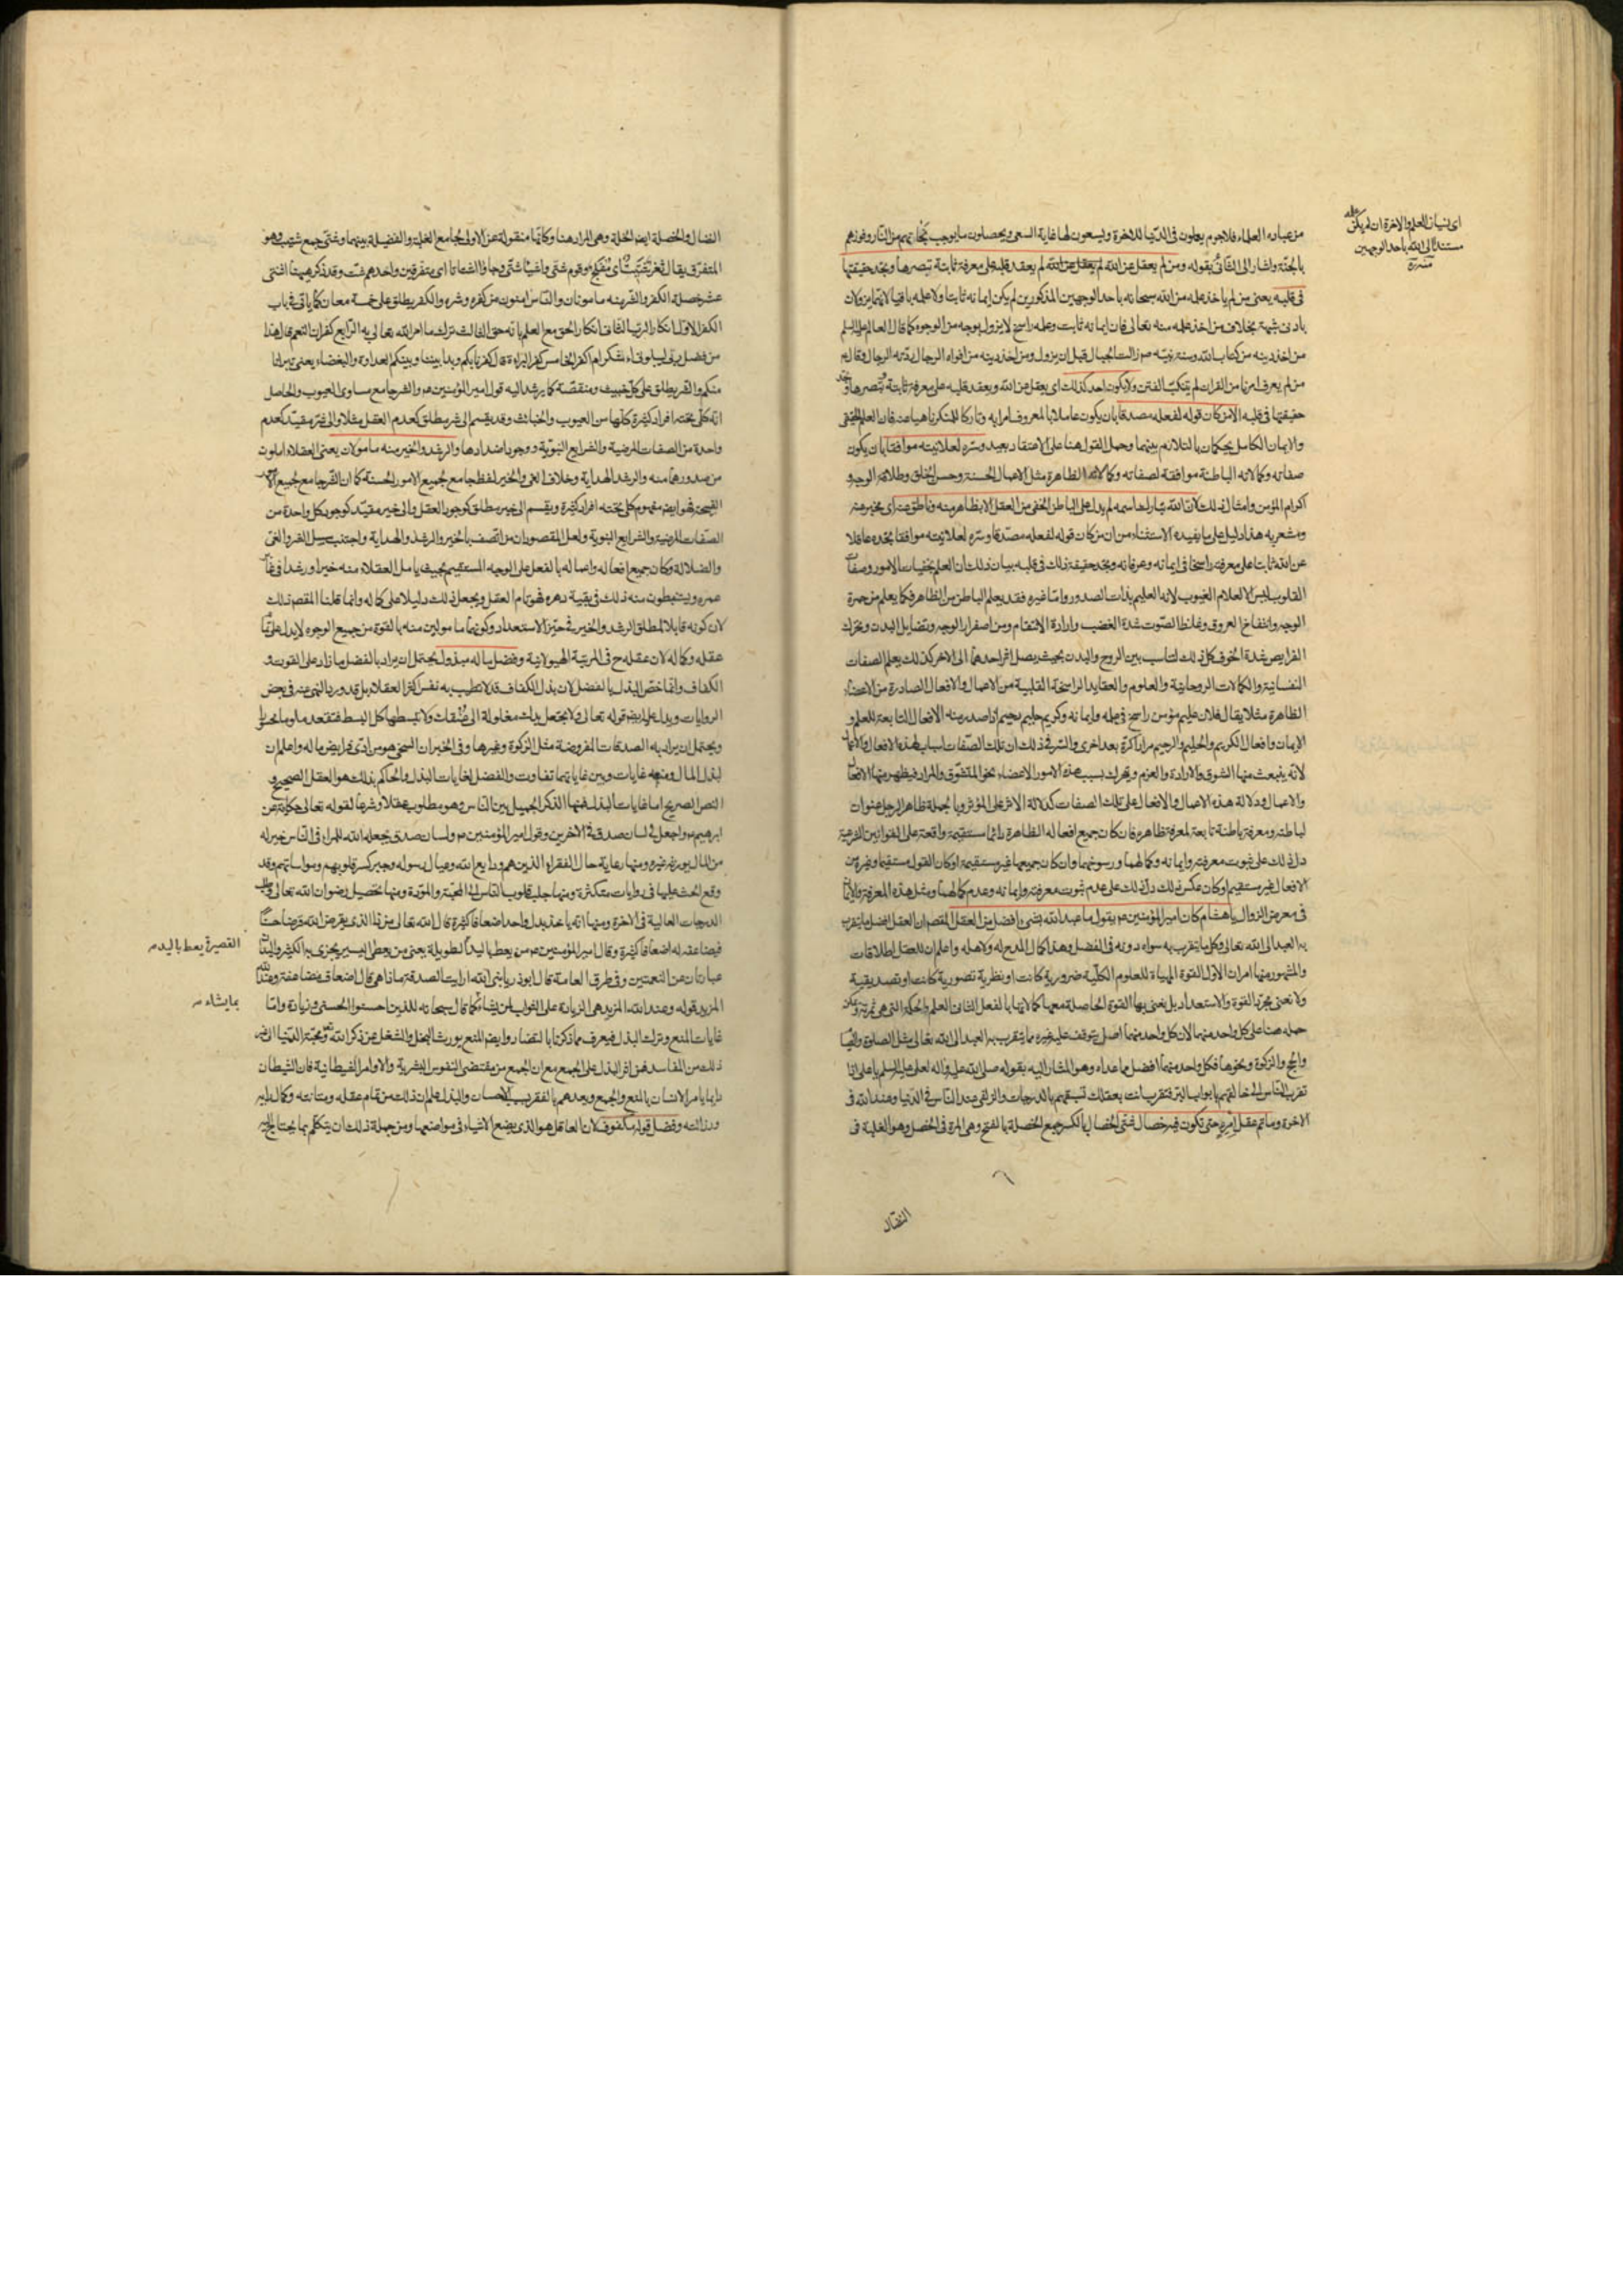 من عباده العلماء فلاجرم يعلمون فى الدنيا للاخرة ويسعون لها غاية السعى ويحصلون ما يوجب نجاتهم من النار وفوزهم
بالجنة واشار الى الثانى بقوله ومن لم يعقل عن الله لم يعقد قلبه على معرفة ثابتة تبصرها ويجد حقيقتها
فى قلبه يعنى من لم ياخذ علمه من الله سبحانه باحد الوجهين المذكورين لم يكن ايمانه ثابتا ولا علمه باقيا
بادنى شبهة بخلاف من اخذ علمه منه تعالى فان ايمانه ثابت وعلمه راسخ لا يزول بوجه من الوجوه كما قال العالم عليه السلم
من اخذ دينه من كتاب الله وسنة نبيه ص زالت الجبال قبل ان يزول ومن اخذ دينه من افواه الرجال ردته الرجال وقال
من لم يعرف امرنا من القران لم يتنكب الفتن ولا يكون احد كذلك اى يعقل عن الله ويعقد قلبه على معرفة ثابتة تبصرها ويجد
حقيقتها فى قلبه الا من كان قوله لفعله مصدقا بان يكون عاملا بالمعروف امرا به وتاركا للمنكر ناهيا عنه فان العلم الحقيقى
والايمان الكامل يحكمان بالتلازم بينهما وحمل القول هنا على الاعتقاد بعيد وسره لعلانيته موافقا بان يكون
صفاته وكمالاته الباطنة موافقة لصفاته وكمالاته الظاهرة مثل الاعمال الحسنة وحسن الخلق وطلاقة الوجه و
اكرام المؤمن وامثال ذلك لان الله تبارك اسمه لم يدل على الباطن الخفى من العقل الا بظاهر منه وناطق عنه اى مخبر عنه
ومشعر به هذا دليل على ما يفيده الاستثناء من ان من كان قوله لفعله مصدقا وسره لعلانيته موافقا يجده عاقلا
عن الله ثابتا على معرفته راسخا فى ايمانه وعرفانه ويجد حقيقة ذلك فى قلبه بيان ذلك ان العلم بخفيات الامور وصفات
القلوب ليس الا لعلام الغيوب لانه العليم بذات الصدور واما غيره فقد يعلم الباطن من الظاهر فكما يعلم من حمرة
الوجه وانتفاخ العروق وغلظ الصوت شدة الغضب وارادة الانتقام ومن اصفرار الوجه وتضايل البدن وتحرك
الفرايص شدة الخوف كل ذلك لتناسب بين الروح والبدن بحيث يصل اثر احدهما الى الاخر كذلك يعلم الصفات
النفسانية والكمالات الروحانية والعلوم والعقايد الراسخة القلبية من الاعمال والافعال الصادرة من الاعضاء
الظاهرة مثلا يقال فلان عليم مؤمن راسخ فى علمه وايمانه وكريم حليم رحيم اذا صدر منه الافعال التابعة للعلم و
الايمان وافعال الكريم والحليم والرحيم مرارا كرة بعد اخرى والسر فى ذلك ان تلك الصفات اسباب لهذه الافعال والاعمال
لانه ينبعث منها الشوق والارادة والعزم ويتحرك بسبب هذه الامور الاعضاء نحو المتشوق والمراد فيظهر منها الافعال
والاعمال ودلالة هذه الاعمال والافعال على تلك الصفات كدلالة الاثر على المؤثر وبالجملة ظاهر الرجل عنوان
لباطنه ومعرفة باطنه تابعة لمعرفة ظاهره فان كان جميع افعاله الظاهرة دائما مستقيمة واقعة على القوانين الشرعية
دل ذلك على ثبوت معرفته وايمانه وكمالهما ورسوخهما وان كان جميعها غير مستقيمة او كان القول مستقيما وغيره من
الافعال غير مستقيم او كان عكس ذلك دل ذلك على عدم ثبوت معرفته وايمانه وعدم كمالهما ومثل هذه المعرفة والايمان
فى معرض الزوال يا هشام كان امير المؤمنين ع يقول ما عبد الله بشىء افضل من العقل المقصود ان العقل افضل ما يتقرب
به العبد الى الله تعالى وكل ما يتقرب به سواه دونه فى الفضل وهذا كمال المدح له ولاهله واعلم ان للعقل اطلاقات
والمشهور منها امران الاول القوة المهياة للعلوم الكلية ضرورية كانت او نظرية تصورية كانت او تصديقية
ولا نعنى مجرد القوة والاستعداد بل نعنى بها القوة الحاصلة معها كمالاتها بالفعل الثانى العلم والحكمة التى هى ثمرته ويمكن
حمله هنا على كل واحد منهما لان كل واحد منهما اصل يتوقف عليه غيره مما يتقرب به العبد الى الله تعالى مثل الصلوة والصيام
والحج والزكوة ونحوها فكل واحد منهما افضل مما عداه وهو المشار اليه بقوله صلى الله عليه واله لعلى عليه السلم يا على اذا
تقرب الناس الى خالقهم بابواب البر فتقرب انت بعقلك تسبقهم بالدرجات والزلفى عند الناس فى الدنيا وعند الله فى
الاخرة وما تم عقل امرئ حتى تكون فيه خصال شتى الخصال بالكسر جميع الخصلة بالفتح وهى المرة فى الخصل وهو الغلبة فى
النضال
اى نسيان العلم والاخرة ان لم يكن علمه
مستندا الى الله باحد الوجهين
منه ره
النضال والخصلة ايضا الخلة وهى المراد هنا وكانها منقولة عن الاولى بجامع الغلبة والفضيلة بينهما وشتى جمع شتيت وهو
المتفرق يقال ثغر شتيت اى مفلج وقوم شتى واشياء شتى وجاؤا اشتاتا اى متفرقين واحدهم شت وقد ذكر هيهنا اثنتى
عشر خصلة الكفر والشر منه مامونان والناس امنون من كفره وشره والكفر يطلق على خمسة معان كما ياتى فى باب
الكفر الاول انكار الرب الثانى انكار الحق مع العلم بانه حق الثالث ترك ما امر الله تعالى به الرابع كفران النعم قال هذا
من فضل ربى ليبلونى ءاشكر ام اكفر الخامس كفر البراءة قال كفرنا بكم وبدا بيننا وبينكم العداوة والبغضاء يعنى تبرانا
منكم والشر يطلق على كل خبيث ومنقصة كما يرشد اليه قول امير المؤمنين ع والشر جامع مساوى العيوب والحاصل
انه كلى تحته افراد كثيرة كلها من العيوب والخبائث وقد يقسم الى شر مطلق كعدم العقل مثلا والى شر مقيد كعدم
واحدة من الصفات المرضية والشرايع النبوية ووجود اضدادها والرشد والخير منه مامولان يعنى العقلاء املون
من صدورهما منه والرشد الهداية وخلاف الغى والخير لفظ جامع لجميع الامور الحسنة كما ان الشر جامع لجميع الامور
القبيحة فهو ايضا مفهوم كلى تحته افراد كثيرة ويقسم الى خير مطلق كوجود العقل والى خير مقيد كوجود كل واحدة من
الصفات المرضية والشرايع النبوية ولعل المقصود ان من اتصف بالخير والرشد والهداية واجتنب سبيل الشر والغى
والضلالة وكان جميع افعاله واعماله بالفعل على الوجه المستقيم بحيث يامل العقلاء منه خيرا ورشدا فى غابر
عمره ويستنبطون منه ذلك فى بقية دهره فهو تام العقل ويجعل ذلك دليلا على كماله وانما قلنا المقصود ذلك
لان كونه قابلا لمطلق الرشد والخير فى حيز الاستعداد وكونهما مامولين منه بالقوة من جميع الوجوه لا يدل على تمام
عقله وكماله لان عقله ح فى المرتبة الهيولانية وفضل ماله مبذول يحتمل ان يراد بالفضل ما زاد على القوت و
الكفاف وانما خص البذل بالفضل لان بذل الكفاف قد لا تطيب به نفس اكثر العقلاء بل قد ورد النهى عنه فى بعض
الروايات ويدل عليه ايضا قوله تعالى ولا تجعل يدك مغلولة الى عنقك ولا تبسطها كل البسط فتقعد ملوما محسورا
ويحتمل ان يراد به الصدقات المفروضة مثل الزكوة وغيرها وفى الخبر ان السخى هو من ادى فرايض ماله واعلم ان
لبذل المال ومنعه غايات وبين غاياتهما تفاوت والفضل لغايات البذل والحاكم بذلك هو العقل الصحيح و
النص الصريح اما غايات البذل فمنها الذكر الجميل بين الناس وهو مطلوب عقلا وشرعا لقوله تعالى حكاية عن
ابرهيم ع واجعل لى لسان صدق فى الاخرين وقول امير المؤمنين ع ولسان صدق يجعله الله للمرء فى الناس خير له
من المال يورثه غيره ومنها رعاية حال الفقراء الذين هم ودايع الله وعيال رسوله وجبر كسر قلوبهم ومواساتهم وقد
وقع الحث عليها فى روايات متكثرة ومنها جلب قلوب الناس الى المحبة والمودة ومنها تحصيل رضوان الله تعالى وطلب
الدرجات العالية فى الاخرة ومنها انه ياخذ بدل واحد اضعافا كثيرة قال الله تعالى من ذا الذى يقرض الله قرضا حسنا
فيضاعفه له اضعافا كثيرة وقال امير المؤمنين ع من يعط باليد الطويلة يعنى من يعطى اليسير يجزى به الكثير واليدان
عبارتان عن النعمتين وفى طرق العامة قال ابوذر يا نبى الله ارايت الصدقة ماذا هى قال اضعاف مضاعفة وعند الله
المزيد قوله وعند الله المزيد هى الزيادة على الثواب لمن يشاء كما قال سبحانه للذين احسنوا الحسنى وزيادة واما
غايات المنع وترك البذل فيعرف مما ذكرنا بالتضاد وايضا المنع يورث البخل والشغل عن ذكر الله ومحبة الدنيا الى غير
ذلك من المفاسد فمن اثر البذل على الجمع مع ان الجمع من مقتضى النفوس البشرية والاوامر الشيطانية فان الشيطان
دايما يامر الانسان بالمنع والجمع ويعدهم بالفقر بسبب الاحسان والبذل علم ان ذلك من تمام عقله ومتانته وكمال رايه
ورزانته وفضل قوله مكفوف لان العاقل هو الذى يضع الاشياء فى مواضعها ومن جملة ذلك ان يتكلم بما يحتاج اليه
القصيرة يعط باليد
بما يشاء